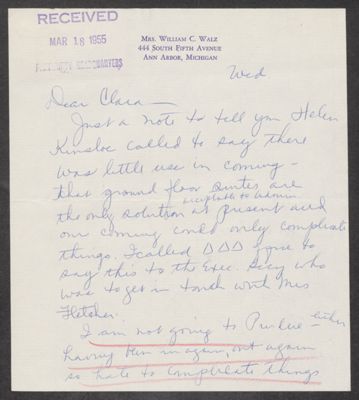 RECEIVED
MAR 18 1955
HEADQUARTERS
MRS. WILLIAM C. WALZ
444 SOUTH FIFTH AVENUE
ANN ARBOR, MICHIGAN
Wed
Dear Clara —
Just a note to tell you Helen
Kinsloe called to say there
was little use in coming —
that ground floor suites are
acceptable to admin.
the only solution at present and
our coming could only complicate
things. I called ΔΔΔ to
say this to the Exec. Secy who
was to get in touch with Mrs
Fletcher.
I am not going to Purdue — either
having been in again, out again
so hate to complicate things